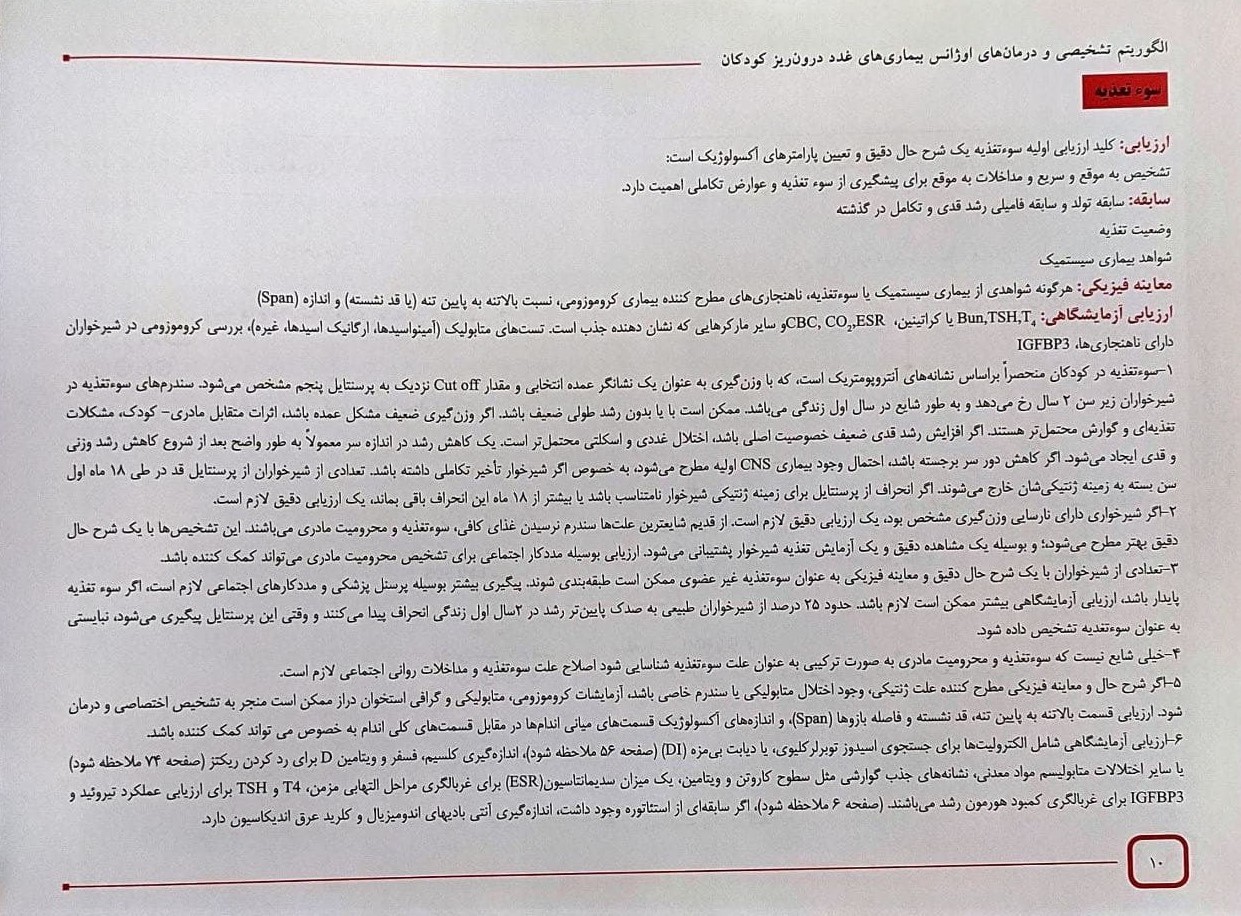 الگوریتم تشخیصی و درمان‌های اوژانس بیماری‌های غدد درون‌ریز کودکان
سوء تغذیه
ارزیابی: کلید ارزیابی اولیه سوءتغذیه یک شرح حال دقیق و تعیین پارامترهای آکسولوژیک است:
تشخیص به موقع و سریع و مداخلات به موقع برای پیشگیری از سوء تغذیه و عوارض تکاملی اهمیت دارد.
سابقه: سابقه تولد و سابقه فامیلی رشد قدی و تکامل در گذشته
وضعیت تغذیه
شواهد بیماری سیستمیک
معاینه فیزیکی: هرگونه شواهدی از بیماری سیستمیک یا سوءتغذیه، ناهنجاری‌های مطرح کننده بیماری کروموزومی، نسبت بالاتنه به پایین تنه (یا قد نشسته) و اندازه (Span)
ارزیابی آزمایشگاهی: Bun,TSH,T4 یا کراتینین، CBC, CO2,ESRو سایر مارکرهایی که نشان دهنده جذب است. تست‌های متابولیک (آمینواسیدها، ارگانیک اسیدها، غیره)، بررسی کروموزومی در شیرخواران
دارای ناهنجاری‌ها، IGFBP3
۱–سوءتغذیه در کودکان منحصراً براساس نشانه‌های آنتروپومتریک است، که با وزن‌گیری به عنوان یک نشانگر عمده انتخابی و مقدار Cut off نزدیک به پرسنتایل پنجم مشخص می‌شود. سندرم‌های سوءتغذیه در
شیرخواران زیر سن ۲ سال رخ می‌دهد و به طور شایع در سال اول زندگی می‌باشد. ممکن است با یا بدون رشد طولی ضعیف باشد. اگر وزن‌گیری ضعیف مشکل عمده باشد، اثرات متقابل مادری– کودک، مشکلات
تغذیه‌ای و گوارش محتمل‌تر هستند. اگر افزایش رشد قدی ضعیف خصوصیت اصلی باشد، اختلال غددی و اسکلتی محتمل‌تر است. یک کاهش رشد در اندازه سر معمولاً به طور واضح بعد از شروع کاهش رشد وزنی
و قدی ایجاد می‌شود. اگر کاهش دور سر برجسته باشد، احتمال وجود بیماری CNS اولیه مطرح می‌شود، به خصوص اگر شیرخوار تأخیر تکاملی داشته باشد. تعدادی از شیرخواران از پرسنتایل قد در طی ۱۸ ماه اول
سن بسته به زمینه ژنتیکی‌شان خارج می‌شوند. اگر انحراف از پرسنتایل برای زمینه ژنتیکی شیرخوار نامتناسب باشد یا بیشتر از ۱۸ ماه این انحراف باقی بماند، یک ارزیابی دقیق لازم است.
۲–اگر شیرخواری دارای نارسایی وزن‌گیری مشخص بود، یک ارزیابی دقیق لازم است. از قدیم شایعترین علت‌ها سندرم نرسیدن غذای کافی، سوءتغذیه و محرومیت مادری می‌باشند. این تشخیص‌ها با یک شرح حال
دقیق بهتر مطرح می‌شود،؛ و بوسیله یک مشاهده دقیق و یک آزمایش تغذیه شیرخوار پشتیبانی می‌شود. ارزیابی بوسیله مددکار اجتماعی برای تشخیص محرومیت مادری می‌تواند کمک کننده باشد.
۳–تعدادی از شیرخواران با یک شرح حال دقیق و معاینه فیزیکی به عنوان سوءتغذیه غیر عضوی ممکن است طبقه‌بندی شوند. پیگیری بیشتر بوسیله پرسنل پزشکی و مددکارهای اجتماعی لازم است، اگر سوء تغذیه
پایدار باشد، ارزیابی آزمایشگاهی بیشتر ممکن است لازم باشد. حدود ۲۵ درصد از شیرخواران طبیعی به صدک پایین‌تر رشد در ۲سال اول زندگی انحراف پیدا می‌کنند و وقتی این پرسنتایل پیگیری می‌شود، نبایستی
به عنوان سوءتغدیه تشخیص داده شود.
۴–خیلی شایع نیست که سوءتغذیه و محرومیت مادری به صورت ترکیبی به عنوان علت سوءتغذیه شناسایی شود اصلاح علت سوءتغذیه و مداخلات روانی اجتماعی لازم است.
۵–اگر شرح حال و معاینه فیزیکی مطرح کننده علت ژنتیکی، وجود اختلال متابولیکی یا سندرم خاصی باشد، آزمایشات کروموزومی، متابولیکی و گرافی استخوان دراز ممکن است منجر به تشخیص اختصاصی و درمان
شود. ارزیابی قسمت بالاتنه به پایین تنه، قد نشسته و فاصله بازوها (Span)، و اندازه‌های آکسولوژیک قسمت‌های میانی اندام‌ها در مقابل قسمت‌های کلی اندام به خصوص می تواند کمک کننده باشد.
۶–ارزیابی آزمایشگاهی شامل الکترولیت‌ها برای جستجوی اسیدوز توبرلرکلیوی، یا دیابت بی‌مزه (DI) (صفحه ۵۶ ملاحظه شود)، اندازه‌گیری کلسیم، فسفر و ویتامین D برای رد کردن ریکتز (صفحه ۷۴ ملاحظه شود)
یا سایر اختلالات متابولیسم مواد معدنی، نشانه‌های جذب گوارشی مثل سطوح کاروتن و ویتامین، یک میزان سدیمانتاسیون(ESR) برای غربالگری مراحل التهابی مزمن، T4 و TSH برای ارزیابی عملکرد تیروئید و
IGFBP3 برای غربالگری کمبود هورمون رشد می‌باشند. (صفحه ۶ ملاحظه شود)، اگر سابقه‌ای از استئاتوره وجود داشت، اندازه‌گیری آنتی بادیهای اندومیزیال و کلرید عرق اندیکاسیون دارد.
۱۰